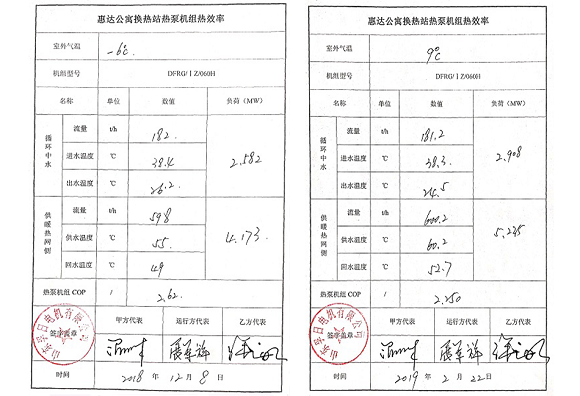 惠达公寓换热站热泵机组热效率
室外气温 -6℃
机组型号 DFRG/ⅠZ/060H
名称 单位 数值 负荷（MW）
循环中水
流量 t/h 182.
进水温度 ℃ 38.4
出水温度 ℃ 26.2.
2.582
供暖热网侧
流量 t/h 598
供水温度 ℃ 55.
回水温度 ℃ 49
4.173.
热泵机组 COP / 2.62.
签字盖章 甲方代表 运行方代表 乙方代表
时间 2018 年 12 月 8 日
惠达公寓换热站热泵机组热效率
室外气温 9℃
机组型号 DFRG/ⅠZ/060H
名称 单位 数值 负荷（MW）
循环中水
流量 t/h 181.2
进水温度 ℃ 38.3
出水温度 ℃ 24.5
2.908
供暖热网侧
流量 t/h 600.2
供水温度 ℃ 60.2
回水温度 ℃ 52.7
5.235
热泵机组 COP / 2.250
签字盖章 甲方代表 运行方代表 乙方代表
时间 2019 年 2 月 22 日